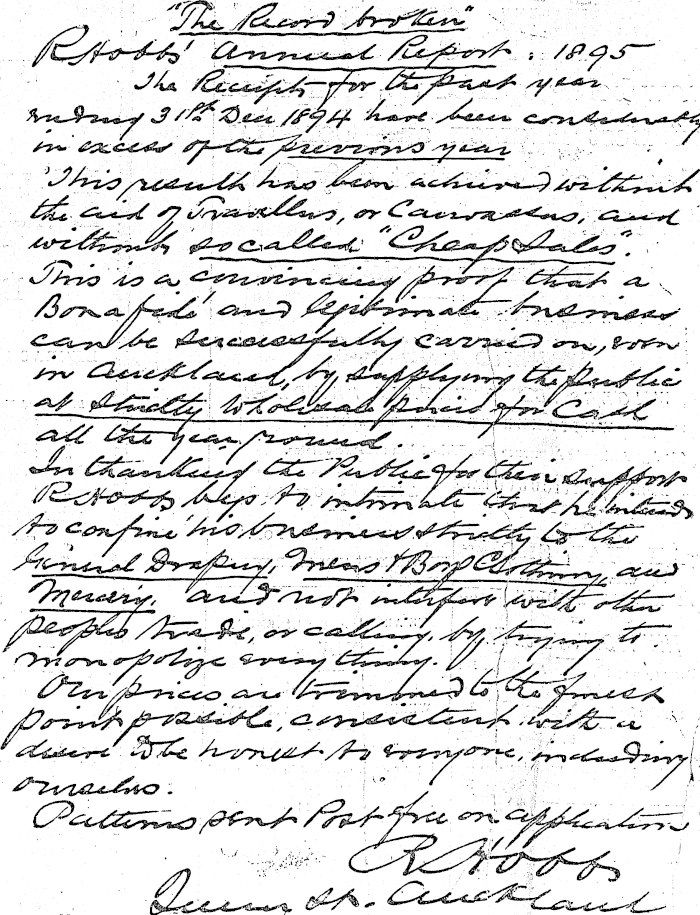 "The Record broken"
R Hobbs' Annual Report. 1895
The Receipts for the past year
ending 31st Dec 1894 have been considerably
in excess of the previous year
This result has been achieved without
the aid of Travellers, or Canvassers, and
without so called "Cheap Sales".
This is a convincing proof that a
Bona fide' and legitimate business
can be successfully carried on, even
in Auckland, by supplying the public
at strictly wholesale prices for Cash
all the year round.
In thanking the Public for their support
R Hobbs begs to intimate that he intends
to confine his business strictly to the
General Drapery, Mens & Boys Clothing, and
Mercery, and not interfere with other
peoples trade, or calling, by trying to
monopolize everything.
Our prices are trimmed to the finest
point possible, consistent with a
desire to be honest to everyone, including
ourselves.
Patterns sent Post free on application
R Hobbs
Queen St. Auckland